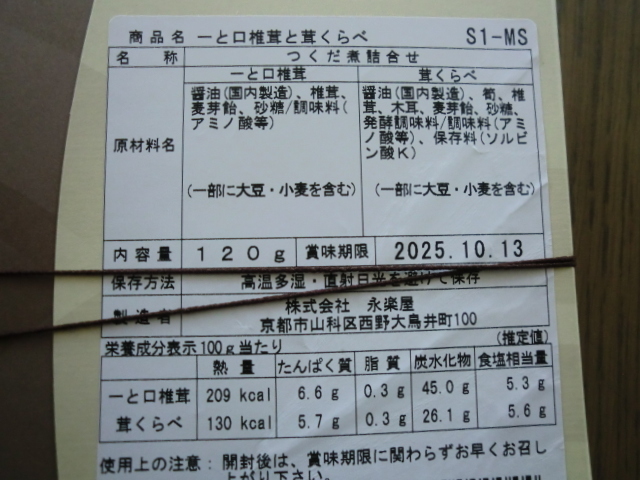 商品名 一と口椎茸と茸くらべ S1-MS
名称 つくだ煮詰合せ
一と口椎茸 茸くらべ
原材料名
醤油(国内製造)、椎茸、
麦芽飴、砂糖/調味料(
アミノ酸等)
(一部に大豆・小麦を含む)
醤油(国内製造)、筍、椎
茸、木耳、麦芽飴、砂糖、
発酵調味料/調味料(アミ
ノ酸等)、保存料(ソルビ
ン酸K)
(一部に大豆・小麦を含む)
内容量 120g 賞味期限 2025.10.13
保存方法 高温多湿・直射日光を避けて保存
製造者 株式会社 永楽屋
京都市山科区西野大鳥井町100
栄養成分表示100g当たり (推定値)
熱量 たんぱく質 脂質 炭水化物 食塩相当量
一と口椎茸 209 kcal 6.6 g 0.3 g 45.0 g 5.3 g
茸くらべ 130 kcal 5.7 g 0.3 g 26.1 g 5.6 g
使用上の注意: 開封後は、賞味期限に関わらずお早くお召し
上がり下さい。